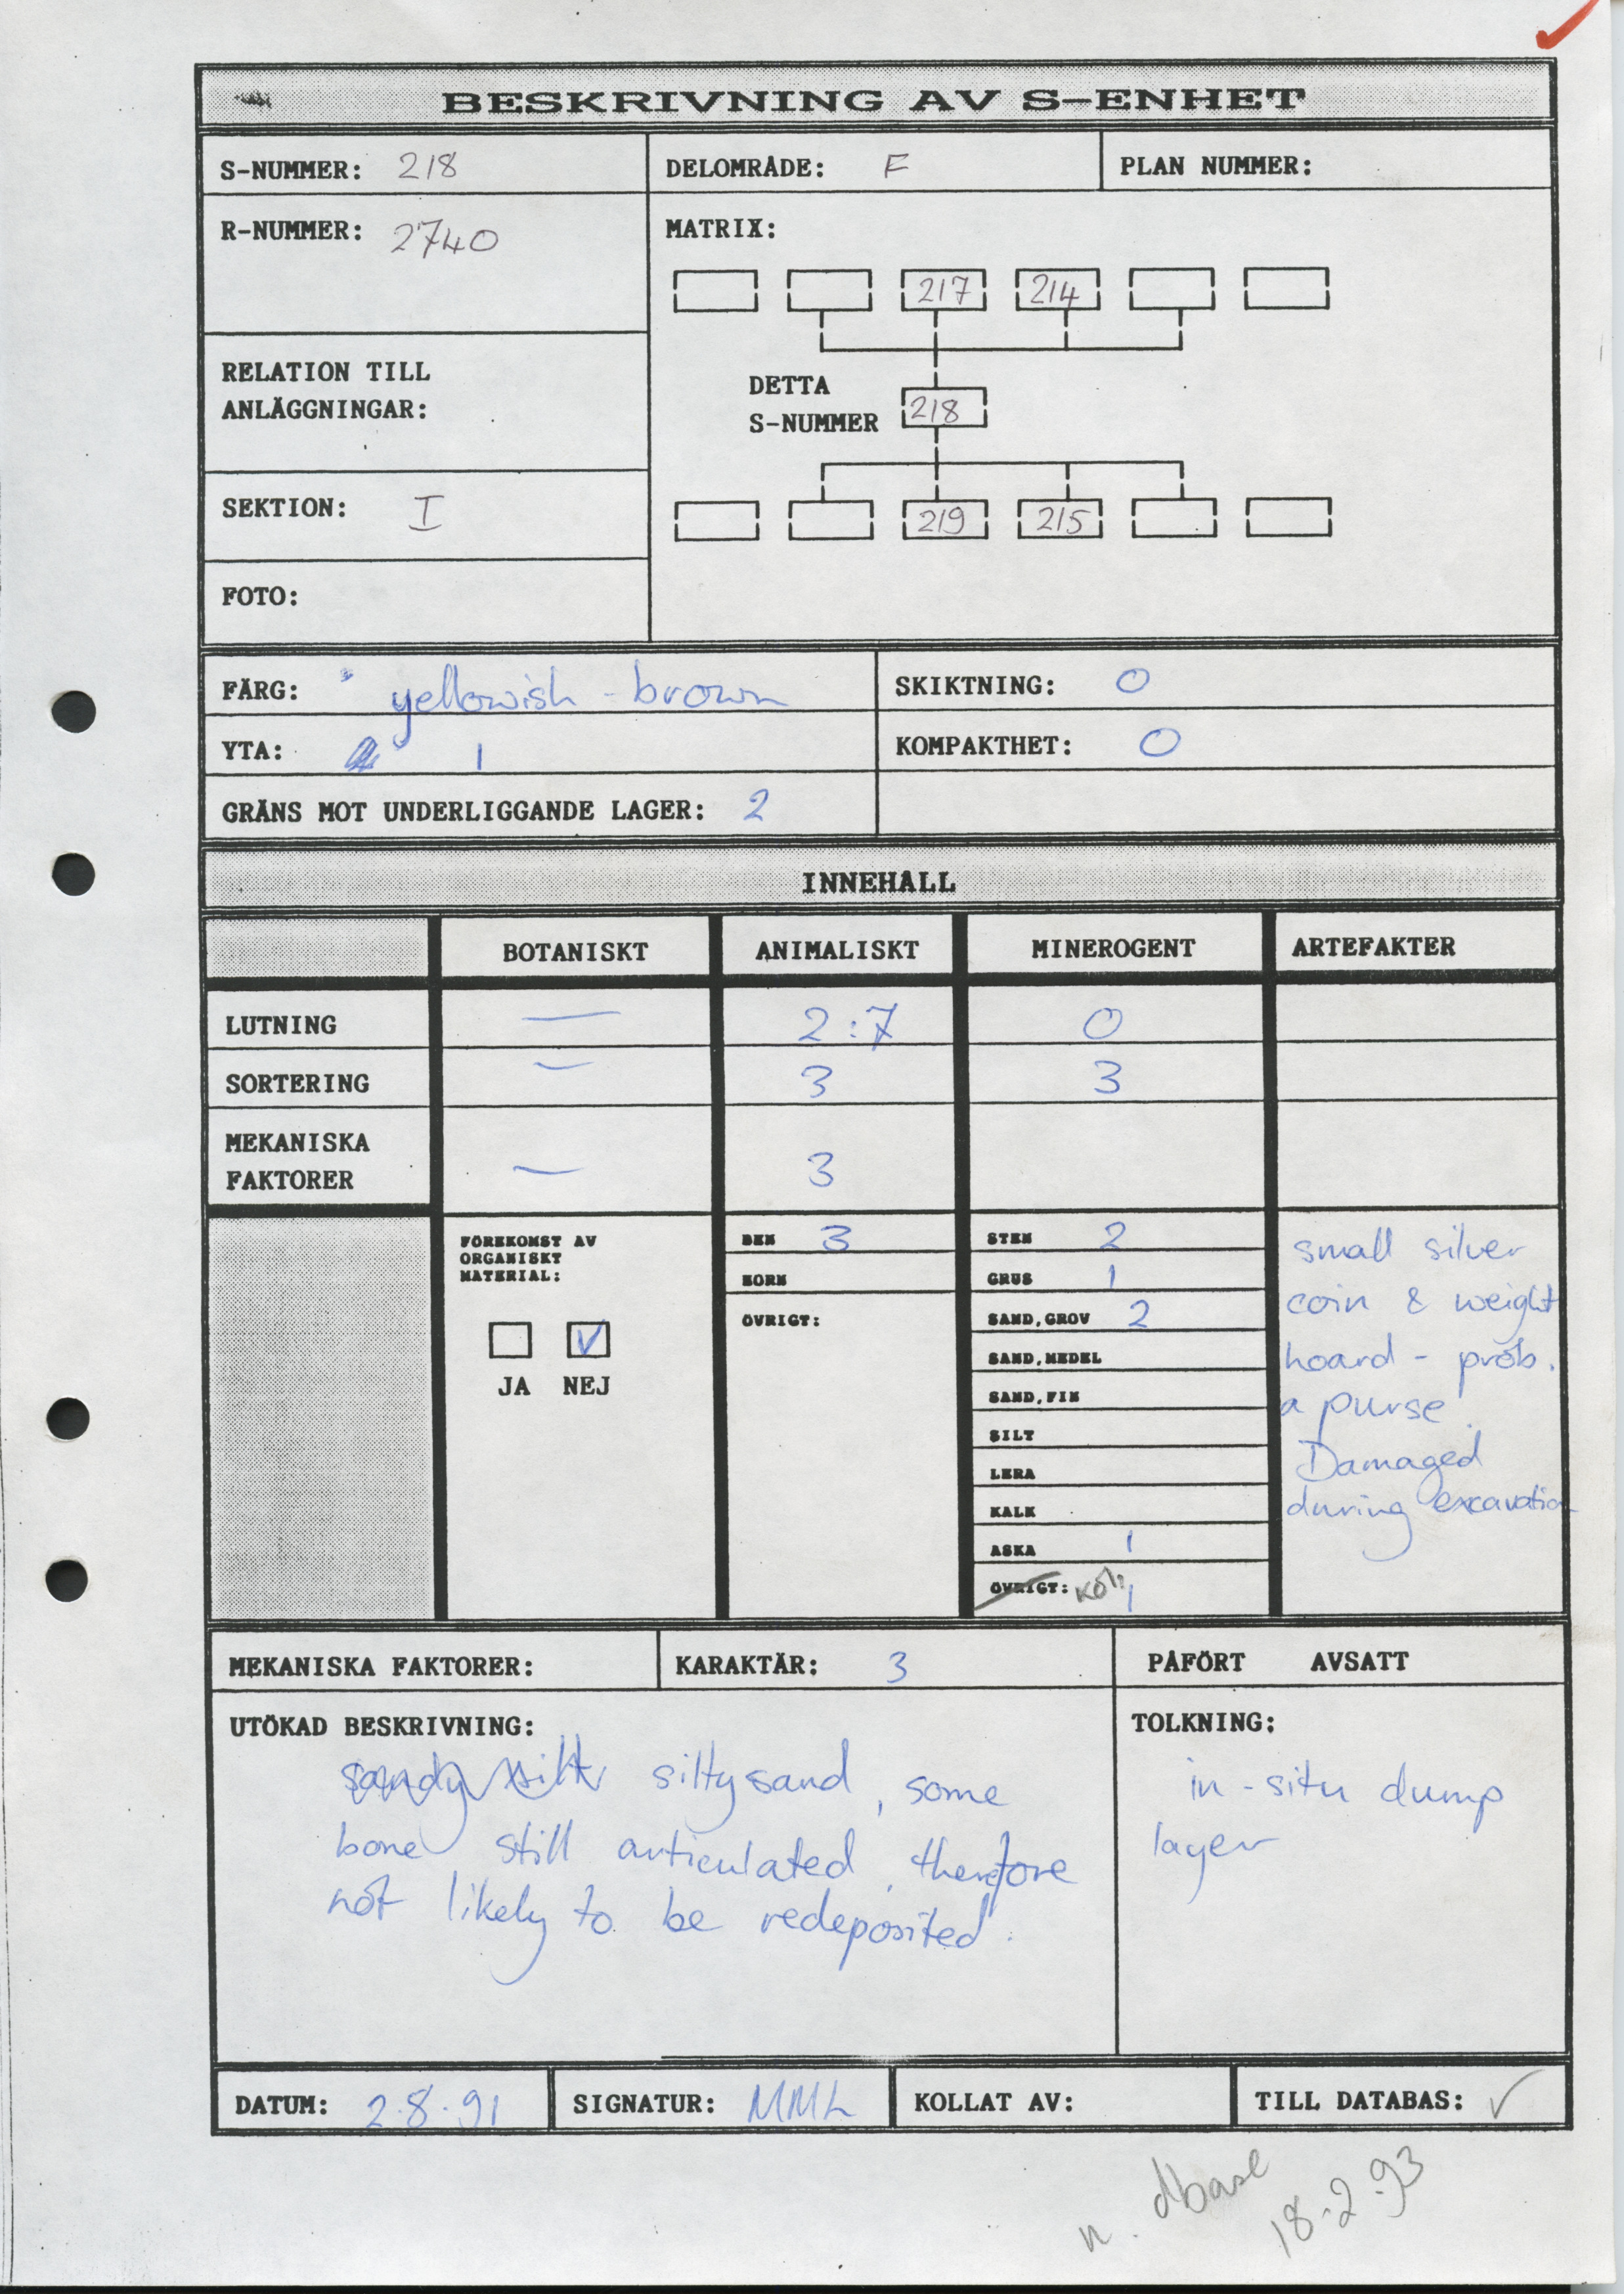 BESKRIVNING AV S-ENHET
S-NUMMER: 218
DELOMRÅDE: F
PLAN NUMMER:
R-NUMMER: 2740
MATRIX:
217 214
RELATION TILL
ANLÄGGNINGAR:
DETTA
S-NUMMER 218
SEKTION: I
219 215
FOTO:
FÄRG: yellowish-brown
SKIKTNING: 0
YTA: 1
KOMPAKTHET: 0
GRÄNS MOT UNDERLIGGANDE LAGER: 2
INNEHALL
BOTANISKT ANIMALISKT MINEROGENT ARTEFAKTER
LUTNING — 2:7 0
SORTERING — 3 3
MEKANISKA
FAKTORER — 3
FÖREKOMST AV
ORGANISKT
MATERIAL:
JA NEJ
BEN 3
HORN
ÖVRIGT:
STEN 2
GRUS 1
SAND, GROV 2
SAND, MEDEL
SAND, FIN
SILT
LERA
KALK
ASKA 1
ÖVRIGT: 1
small silver
coin & weight
hoard - prob.
a purse.
Damaged
during excavation
MEKANISKA FAKTORER:
KARAKTÄR: 3
PÅFÖRT AVSATT
UTÖKAD BESKRIVNING:
sandy silt silty sand, some
bone still articulated, therefore
not likely to be redeposited.
TOLKNING:
in-situ dump
layer
DATUM: 2.8.91
SIGNATUR: MML
KOLLAT AV:
TILL DATABAS: ✓
n. dbase
18.2.93